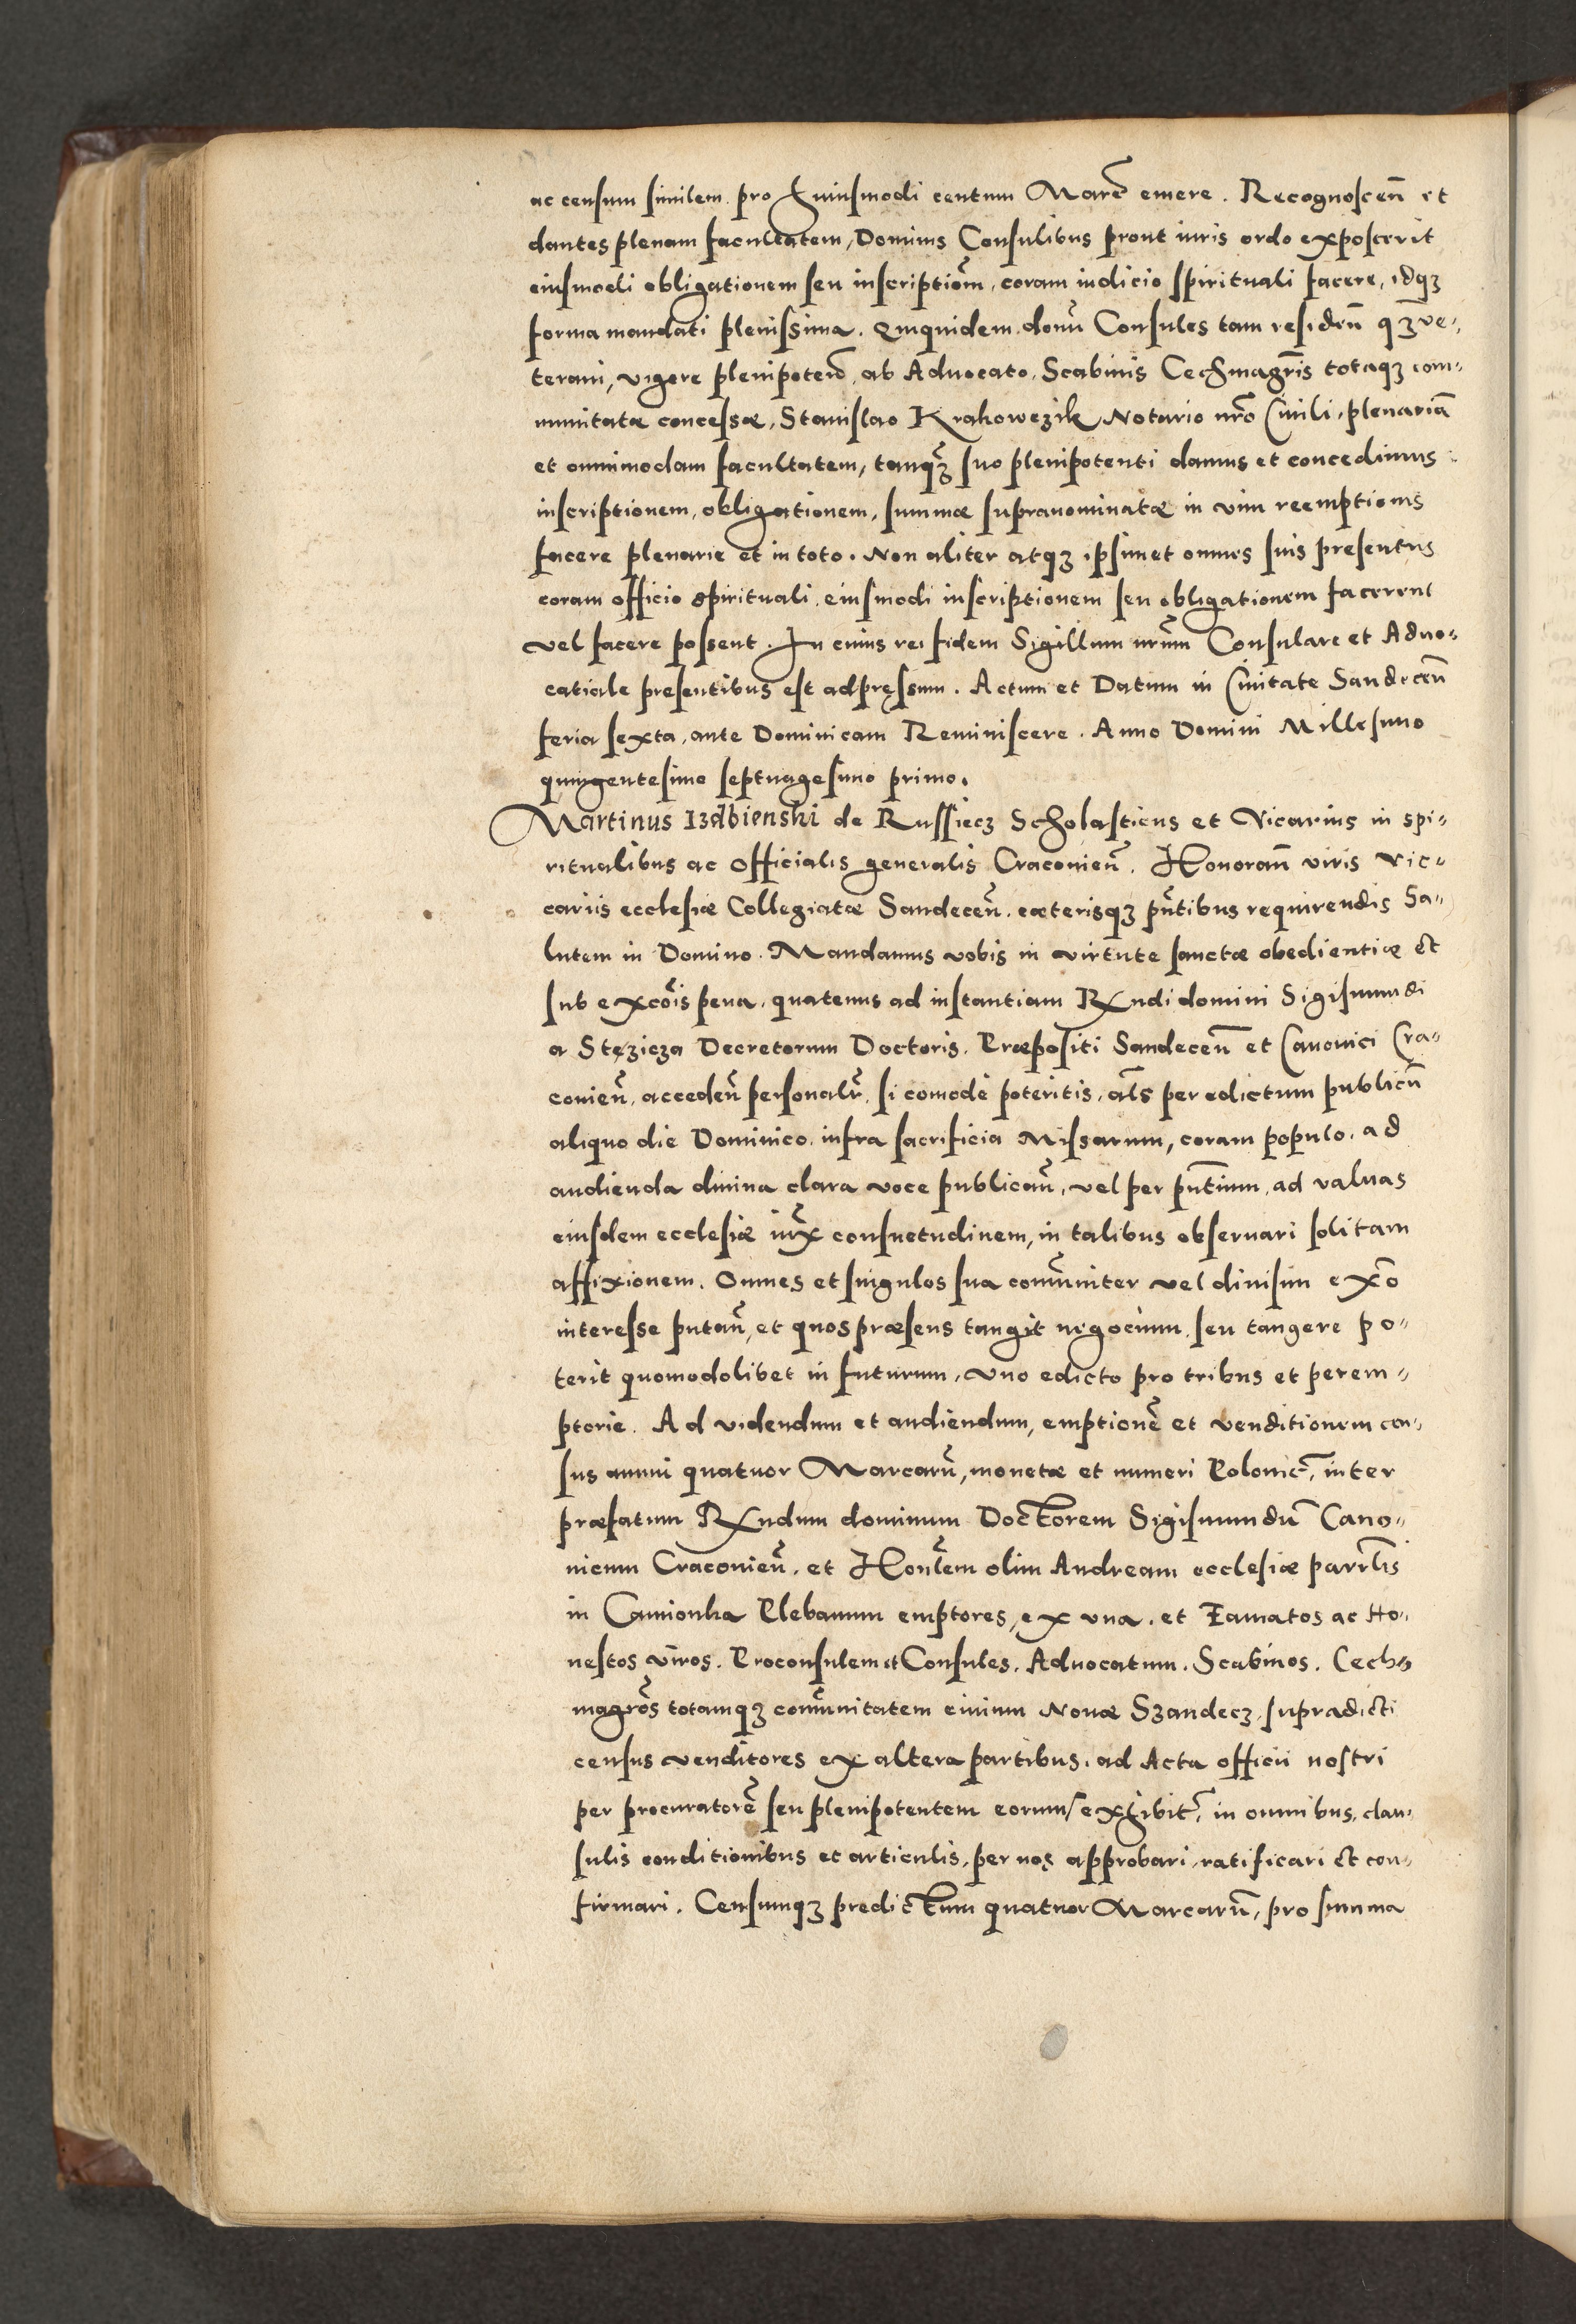 ac censum similem pro huiusmodi centum Marc̃ emere. Recognoscen̄ et
dantes plenam facultatem, Dominis Consulibus prout iuris ordo exposcerit
eiusmodi obligationem seu inscriptiõm, coram iudicio spirituali facere, idqꝫ
forma mandati plenissima. Quiquidem domĩ Consules tam residen̄ qꝫ ve-,
terani, vigore plenipoten̄, ab Aduocato, Scabinis Cechmagr̃is totaqꝫ com-,
munitatæ concessæ, Stanislao Krakowczik Notario nr̃o Ciuili, plenariā
et omnimodam facultatem, tanqꝫ̃ suo plenipotenti damus et concedimus
inscriptionem, obligationem, summæ supranominatæ in vim reemptionis
facere plenarie et in toto. Non aliter atqꝫ ipsimet omnes suis presentiis
coram officio spirituali, eiusmodi inscriptionem seu obligationem facerent
vel facere possent. In cuius rei fidem Sigillum nr̃um Consulare et Aduo-
catiale presentibus est adpręssum. Actum et Datum in Ciuitate Sandecen̄
feria sexta, ante Dominicam Reminiscere. Anno Domini Millesimo
quingentesimo septuagesimo primo.
Martinus Izdbienski de Russiecz Scholasticus et Vicarius in spi-
ritualibus ac Officialis generalis Cracouien̄. Honoran̄ viris vic-
cariis ecclesiæ Collegiatæ Sandecen̄. cæterisqꝫ pñtibus requirendis Sa-
lutem in Domino. Mandamus vobis in virtute sanctæ obedientiæ et
sub excõis pena, quatenus ad instantiam Rx̃ndi domini Sigismundi
a Stęzicza Decretorum Doctoris, Præpositi Sandecen̄ et Canonici Cra-
couien̄, acceden̄ personalr̃, si comode poteritis, als̃ per edictum publicū
aliquo die Dominico, infra sacrificia Missarum, coram populo, ad
audienda diuina clara voce publican̄, vel per pñtium, ad valuas
eiusdem ecclesiæ iux̃ consuetudinem, in talibus obseruari solitam
affixionem. Omnes et singulos sua cõmuniter vel diuisim ex̃o
interesse putan̄, et quos præsens tangit negocium, seu tangere po-
terit quomodolibet in futurum, vno edicto pro tribus et perem-
ptorie. Ad videndum et audiendum, emptionē et venditionem cen-
sus annui quatuor Marcarū, monetæ et numeri Polonic̃, inter
præfatum Rx̃ndum dominum Doctorem Sigismundū Cano-
nicum Cracouien̄. et Honl̃em olim Andream ecclesiæ parr̃lis
in Camionka Plebanum emptores, ex vna, et Famatos ac Ho-
nestos viros, Proconsulem et Consules, Aduocatum, Scabinos, Cech-
magr̃os totamqꝫ cõmunitatem ciuium Nouæ Szandecz, supradicti
census venditores ex altera partibus, ad Acta officii nostri
per procuratorē seu plenipotentem eorum exhibit̃, in omnibus, clau-
sulis conditionibus et articulis, per nos approbari, ratificari et con-
firmari. Censumqꝫ predictum quatuor Marcarū, pro summa